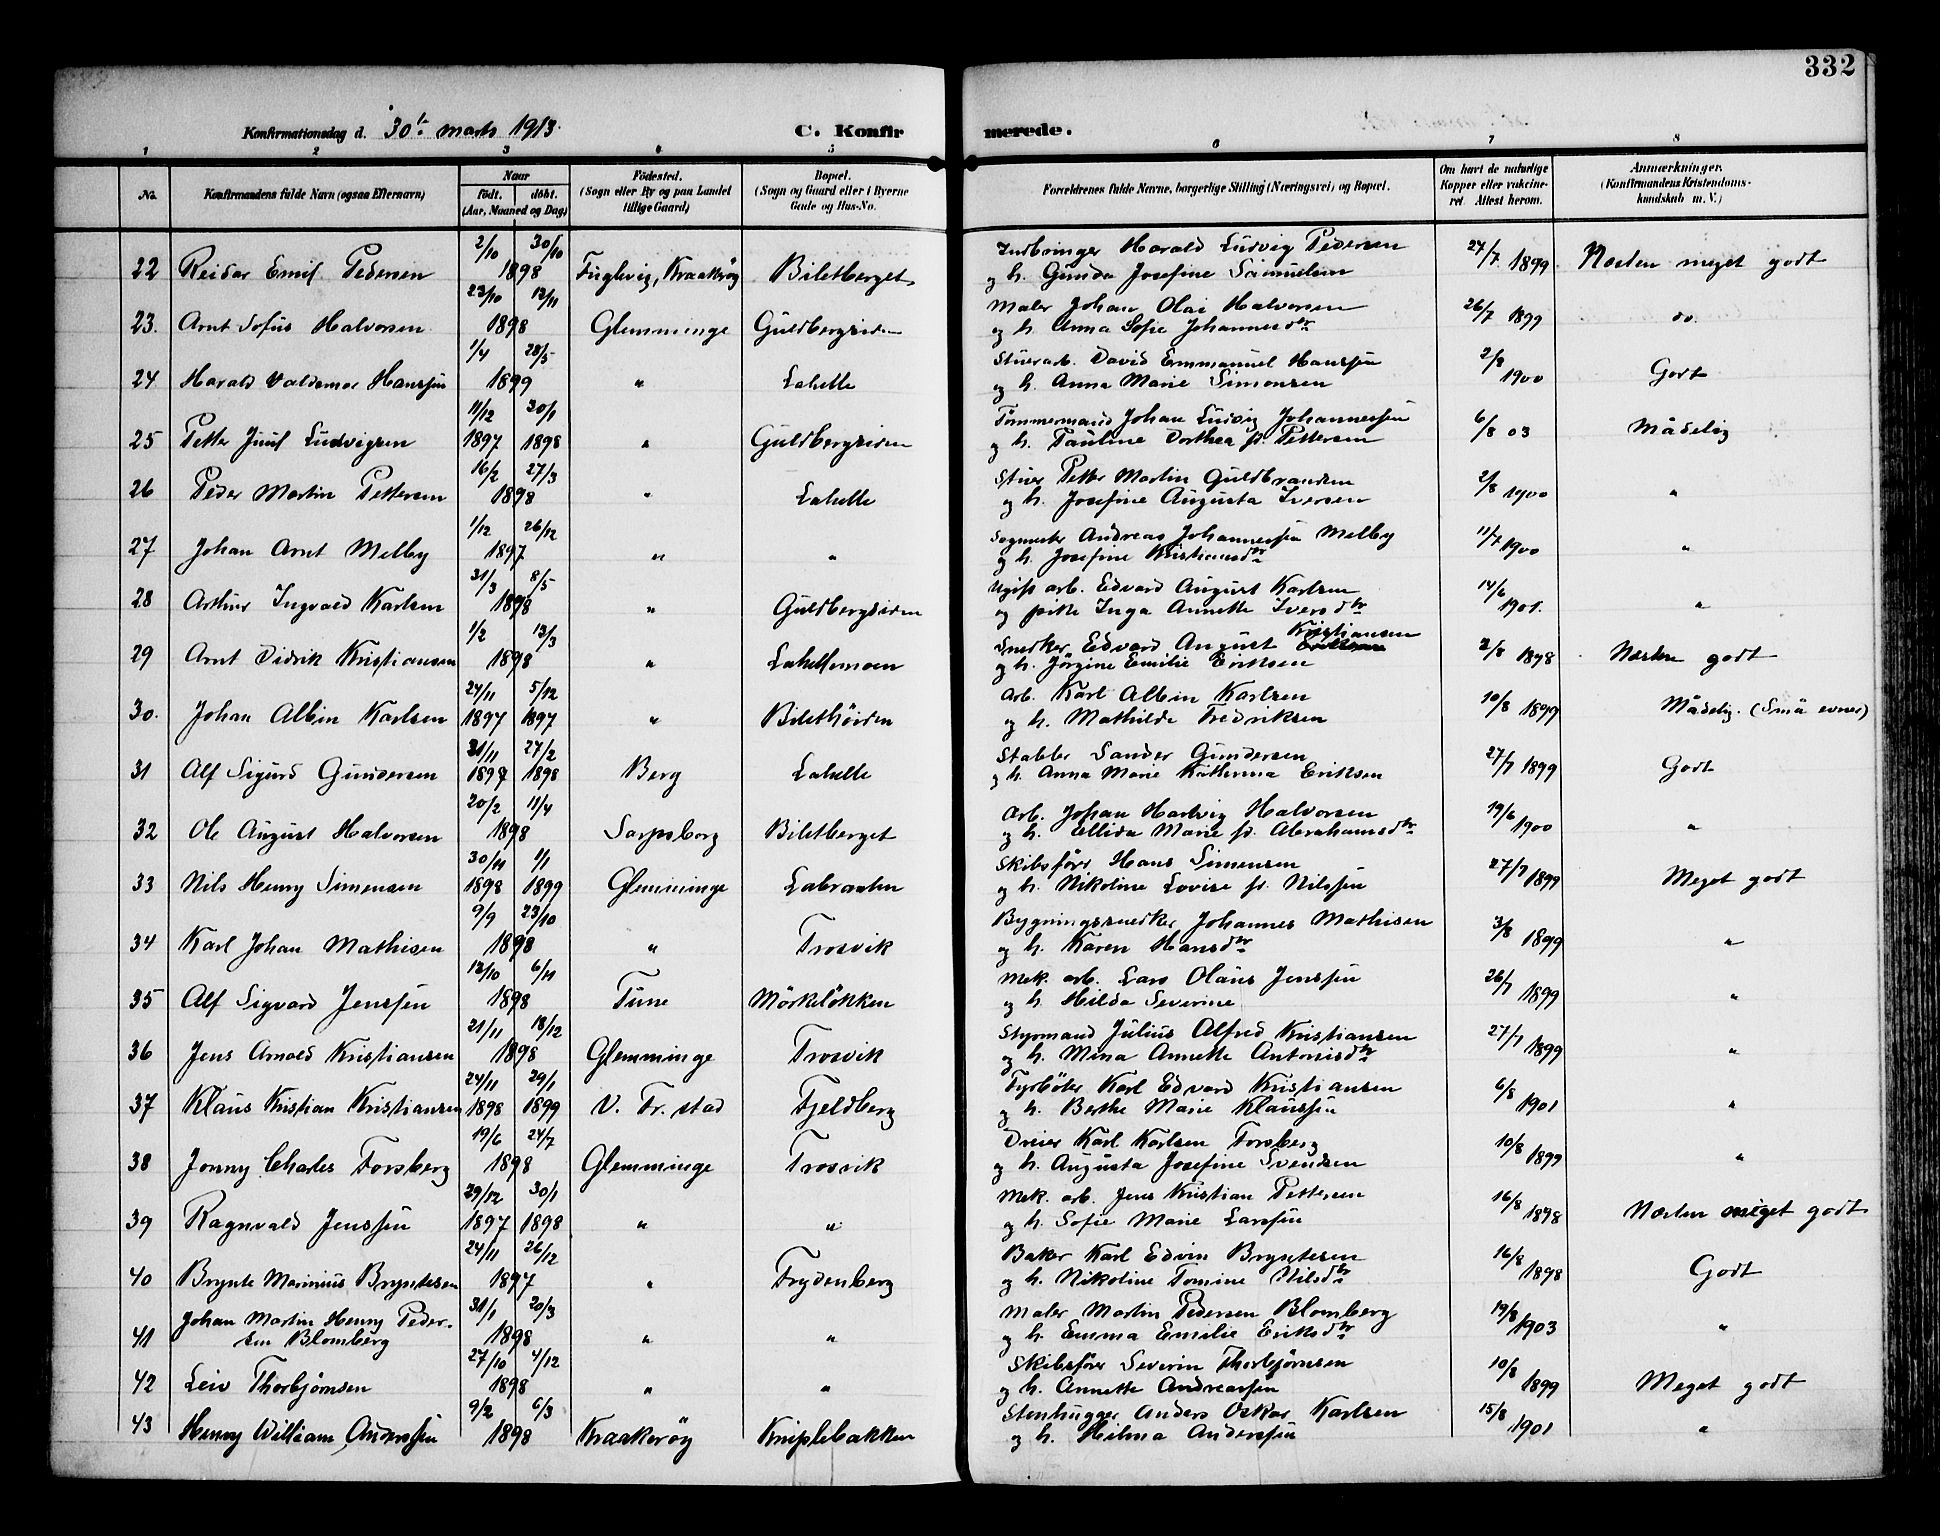 332
Konfirmationsdag d. 30te marts 1913.
C. Konfirmerede.
1 2 3 4 5 6 7 8
No. Konfirmandens fulde Navn (ogsaa Efternavn) Naar født. døbt. (Aar, Maaned og Dag) Fødested. (Sogn eller By og paa Landet tillige Gaard) Bopæl. (Sogn og Gaard eller i Byerne Gade og Hus-No. Forældrenes fulde Navne, borgerlige Stilling (Næringsvei) og Bopæl. Om havt de naturlige Kopper eller vakcineret. Attest herom. Anmærkninger. (Konfirmandens Kristendomskundskab m. V.)
22 Reidar Emil Pedersen 2/10 30/10 1898 Fuglevig, Kraakerøy Biletberget Indbringer Harald Ludvig Pedersen
og h. Gunda Josefine Samuelsen 27/7 1899 Næsten meget godt
23. Arnt Sofus Halvorsen 23/10 13/11 1898 Glemminge Guldbergsiden Maler Johan Olai Halvorsen
og h. Anna Sofie Johannesdtr 26/7 1899 do.
24 Harald Valdemar Hanssen 1/4 28/5 1899 " Lahelle Stuerarb. David Emmanuel Hanssen
og h. Anna Marie Simonsen 2/8 1900 Godt
25 Petter Juul Ludvigsen 11/12 1897 30/1 1898 " Guldbergsiden Tømmermand Johan Ludvig Johannessen
og h. Pauline Dorthea f. Pettersen 6/8 03 Mådelig
26 Peder Martin Pettersen 16/2 27/3 1898 " Lahelle Stuer Petter Martin Guldbrandsen
og h. Josefine Augusta Iversen 2/8 1900 "
27 Johan Arnt Melby 1/12 26/12 1897 " " Sagmester Andreas Johannessen Melby
og h. Josefine Kristiansdtr 11/7 1900 "
28 Arthur Ingvald Karlsen 31/3 8/5 1898 " Guldbergsiden Ugift arb. Edvard August Karlsen
og pike Inga Annette Iversdtr 14/6 1901. "
29 Arnt Didrik Kristiansen 1/2 13/3 1898 " Lahellemoen Snedker Edvard August Kristiansen
og h. Jørgine Emilie Eriksen 2/8 1898 Næsten godt
30. Johan Albin Karlsen 24/11 1897 5/12 1897 " Bilethøiden Arb. Karl Albin Karlsen
og h. Mathilde Fredriksen 10/8 1899 Mådelig. (Små evner)
31 Alf Sigurd Gundersen 31/11 1897 27/2 1898 Berg Lahelle Stabler Sander Gundersen
og h. Anna Marie Katherina Eriksen 27/7 1899 Godt
32 Ole August Halvorsen 20/2 11/4 1898 Sarpsborg Biletberget Arb. Johan Hartvig Halvorsen
og h. Ellida Marie f. Abrahamsdtr 19/6 1900 "
33 Nils Henry Simensen 30/11 1898 1/1 1899 Glemminge Labraaten Skibsfører Hans Simensen
og h. Nikoline Lovise f. Nilssen 27/7 1899 Meget godt
34 Karl Johan Mathisen 9/9 23/10 1898 " Trosvik Bygningssnedker Johannes Mathisen
og h. Karen Hansdtr 3/8 1899 "
35 Alf Sigvard Jenssen 13/10 6/11 1898 Tune Mørkeløkken Mek. arb. Lars Olaus Jenssen
og h Hilda Severine 26/7 1899 "
36 Jens Arnold Kristiansen 21/11 18/12 1898 Glemminge Trosvik Styrmand Julius Alfred Kristiansen
og h. Mina Annette Antonisdtr 27/7 1899 "
37 Klaus Kristian Kristiansen 24/11 1898 29/1 1899 V. Fr. stad Fjeldberg Fyrbøter Karl Edvard Kristiansen
og h. Berthe Marie Klaussen 6/8 1901 "
38 Jonny Charles Forsberg 19/6 24/7 1898 Glemminge Trosvik Dreier Karl Karlsen Forsberg
og h. Augusta Josefine Svendsen 10/8 1899 "
39 Ragnvald Jenssen 29/12 1897 30/1 1898 " " Mek. arb. Jens Kristian Pettersen
og h. Sofie Marie Larssen 16/8 1898 Næsten meget godt
40 Brynte Marinius Bryntesen 24/11 26/12 1897 " Frydenberg Baker Karl Edvin Bryntesen
og h. Nikoline Tomine Nilsdtr 16/8 1898 Godt
41 Johan Martin Henry Peder-
sen Blomberg 31/1 20/3 1898 " " Maler Martin Pedersen Blomberg
og h. Emma Emilie Eriksdtr 19/8 1903 "
42 Leiv Thorbjørnsen 27/10 4/12 1898 " " Skibsfører Severin Thorbjørnsen
og h. Annette Andreassen 10/8 1899 Meget godt
43 Henry William Anderssen 9/2 6/3 1898 Kraakerøy Kniplebakken Stenhugger Anders Oskar Karlsen
og h. Hilma Anderssen 15/8 1901 "